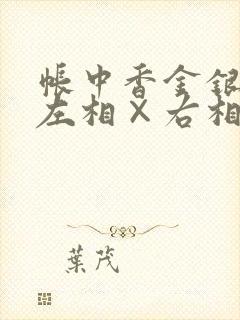 帳中香金銀
左相×右相
葉茂